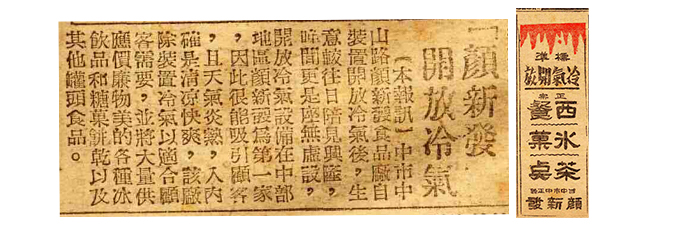 顏新發
開放冷氣
【本報訊】中市中
山路顏新發食品廠自
裝置開放冷氣後，生
意較往日暗見興隆，
晚間更是座無虛設，
開放冷氣設備在中部
地區顏新發為第一家
，因此很能吸引顧客
，且天氣炎熱，入內
確是清涼快爽，該廠
除裝置冷氣以適合顧
客需要，並將大量供
應價廉物美的各種冰
飲品和糖菓餅乾以及
其他罐頭食品。
標準
冷氣開放
正宗
西餐
冰菓
茶点
台中市中正路
顏新發